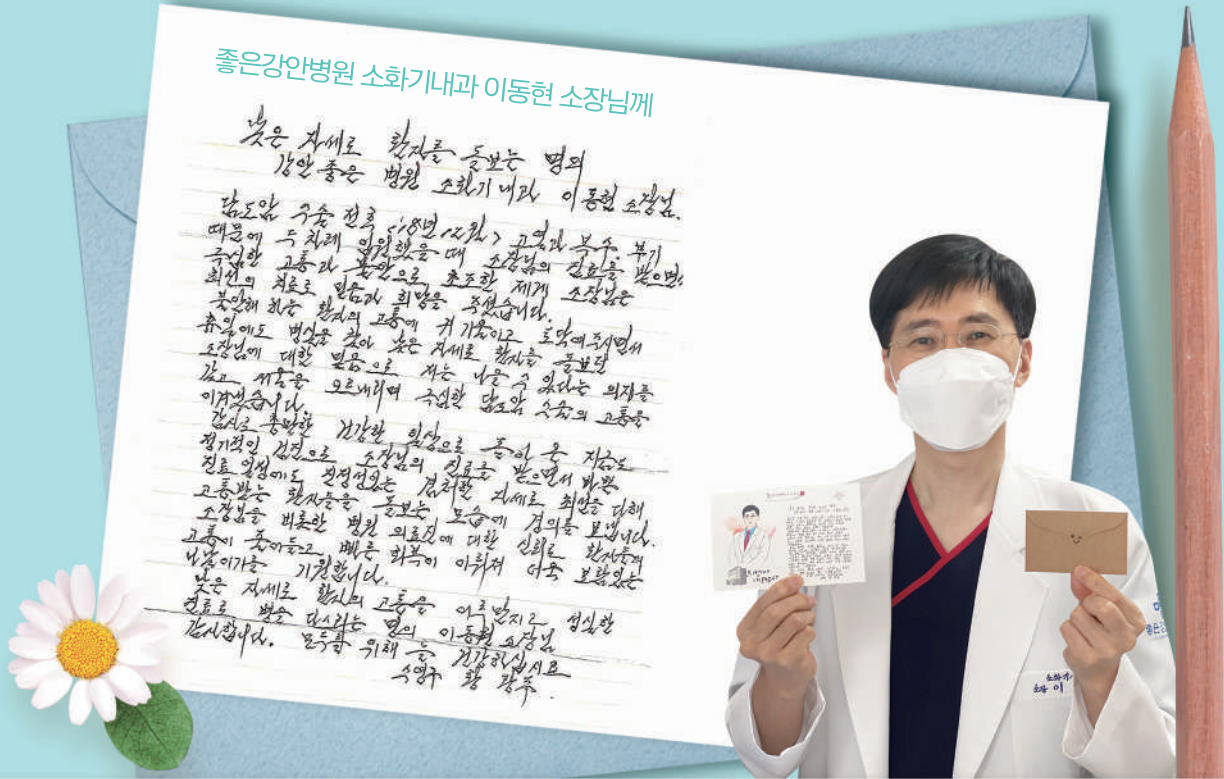 좋은강안병원 소화기내과 이동현 소장님께
낮은 자세로 환자를 돌보는 명의
강안 좋은 병원 소화기내과 이동현 소장님.
담도암 수술 전후 <18년 12월> 고열과 복수, 부기
때문에 두 차례 입원했을 때 소장님의 진료를 받으면서
극심한 고통과 불안으로 초조한 제게 소장님은
최선의 치료로 믿음과 희망을 주셨습니다.
불안해 하는 환자의 고통에 귀 기울이고 토닥여 주시면서
휴일에도 병실을 찾아 낮은 자세로 환자를 돌보던
소장님에 대한 믿음으로 저는 나을 수 있다는 의지를
갖고 서울을 오르내리며 극심한 담도암 수술의 고통을
이겨냈습니다.
감사로 충만한 건강한 일상으로 돌아 온 지금도
정기적인 검진으로 소장님의 진료를 받으면서 바쁜
진료 일정에도 진정성있는 겸허한 자세로 최선을 다해
고통받는 환자들을 돌보는 모습에 경의를 보냅니다.
소장님을 비롯한 병원 의료진에 대한 신뢰로 환자들의
고통이 줄어들고 빠른 회복이 이뤄져 더욱 보람있는
나날이기를 기원합니다.
낮은 자세로 환자의 고통을 어루만지고 성실한
진료로 병을 다스리는 명의 이동현 소장님
감사합니다. 모두를 위해 늘 건강하십시요
수영구 황 광주.
소화기
소장 이